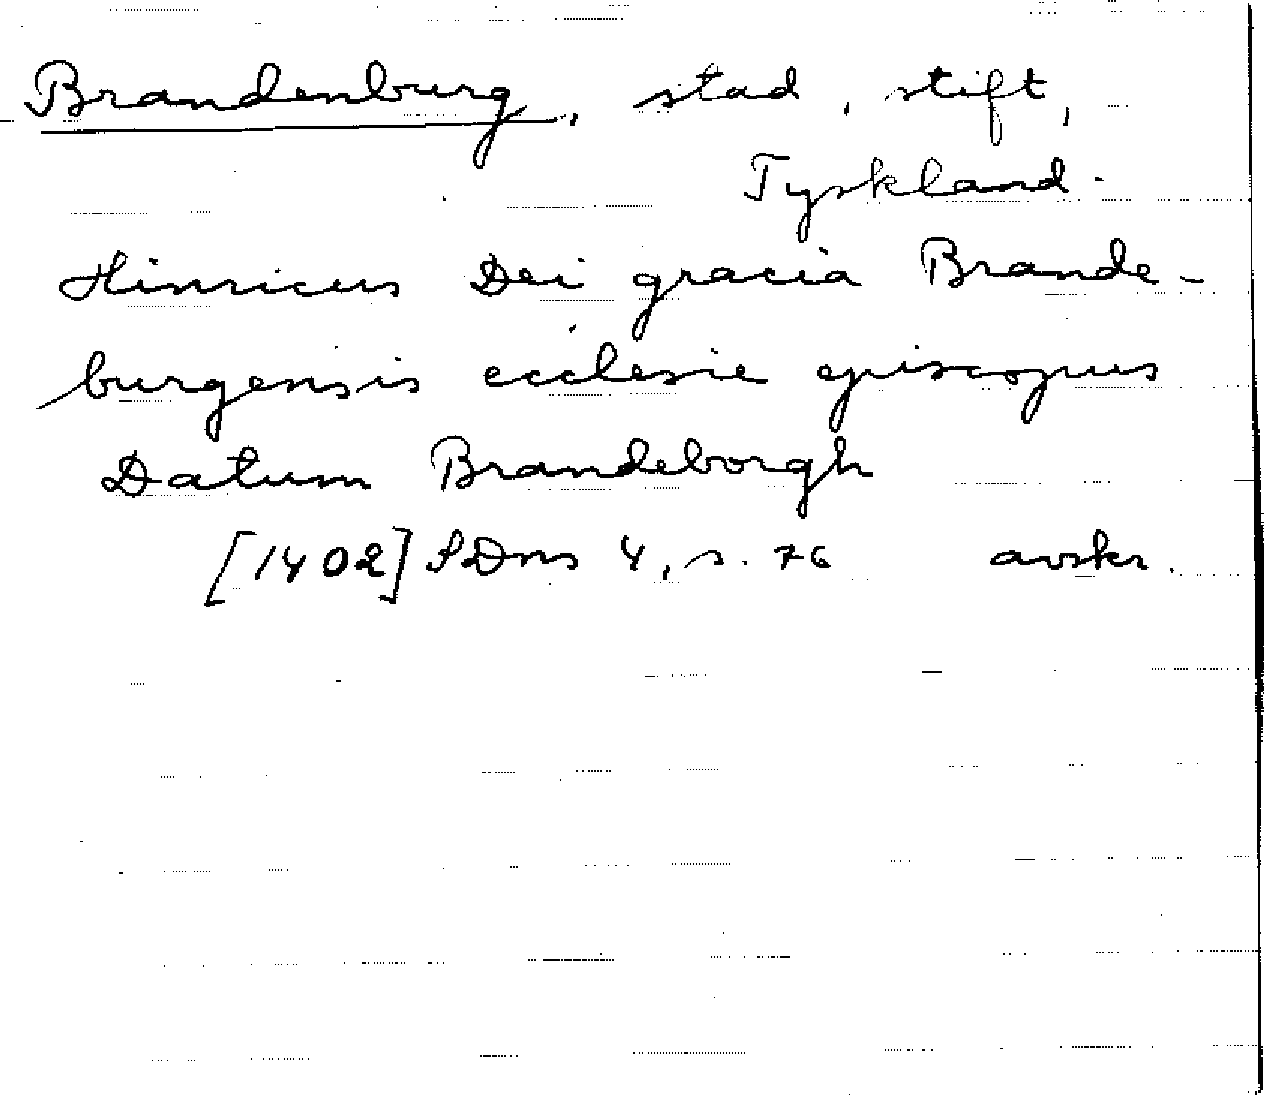 Brandenburg, stad, stift,
Tyskland.
Hinricus Dei gracia Brande-
burgensis ecclesie episcopus
Datum Brandeborgh
[1402] SDns 4, s. 76 avskr.